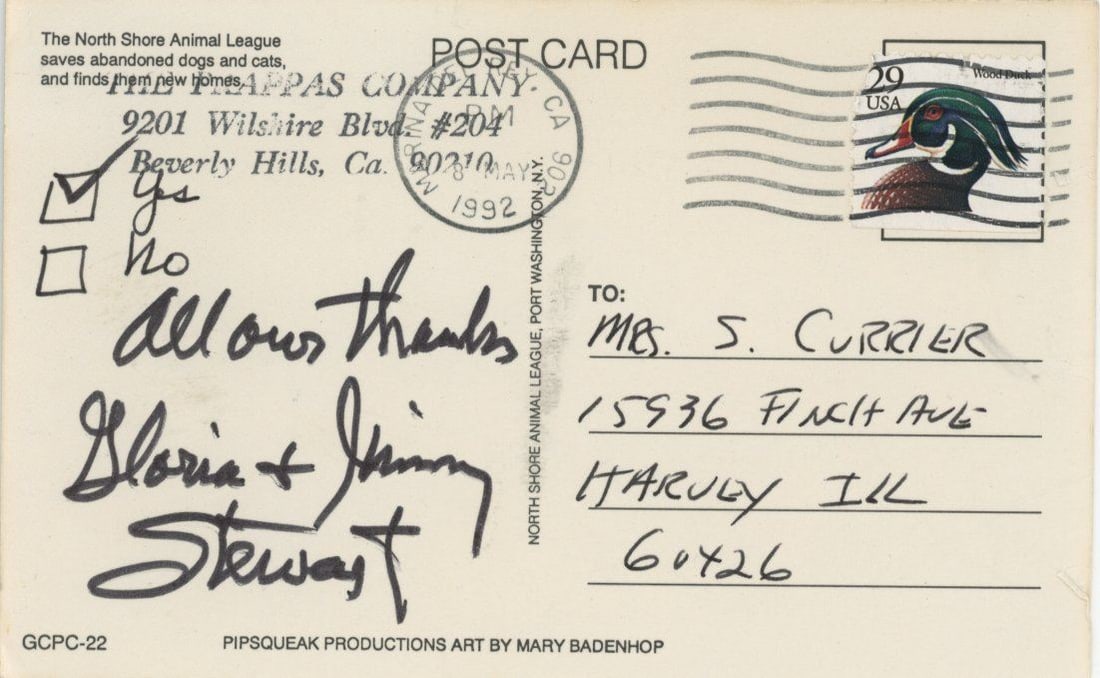 The North Shore Animal League
saves abandoned dogs and cats,
and finds them new homes.
THE TRAPPAS COMPANY
9201 Wilshire Blvd. #204
Beverly Hills, Ca. 90210
Yes
No
All our thanks
Gloria + Jimmy
Stewart
GCPC-22
PIPSQUEAK PRODUCTIONS ART BY MARY BADENHOP
POST CARD
MARINA REY, CA 902
PM
8 MAY
1992
NORTH SHORE ANIMAL LEAGUE, PORT WASHINGTON, N.Y.
29
USA
Wood Duck
TO:
MRS. S. CURRIER
15936 FINCH AVE
HARVEY ILL
60426